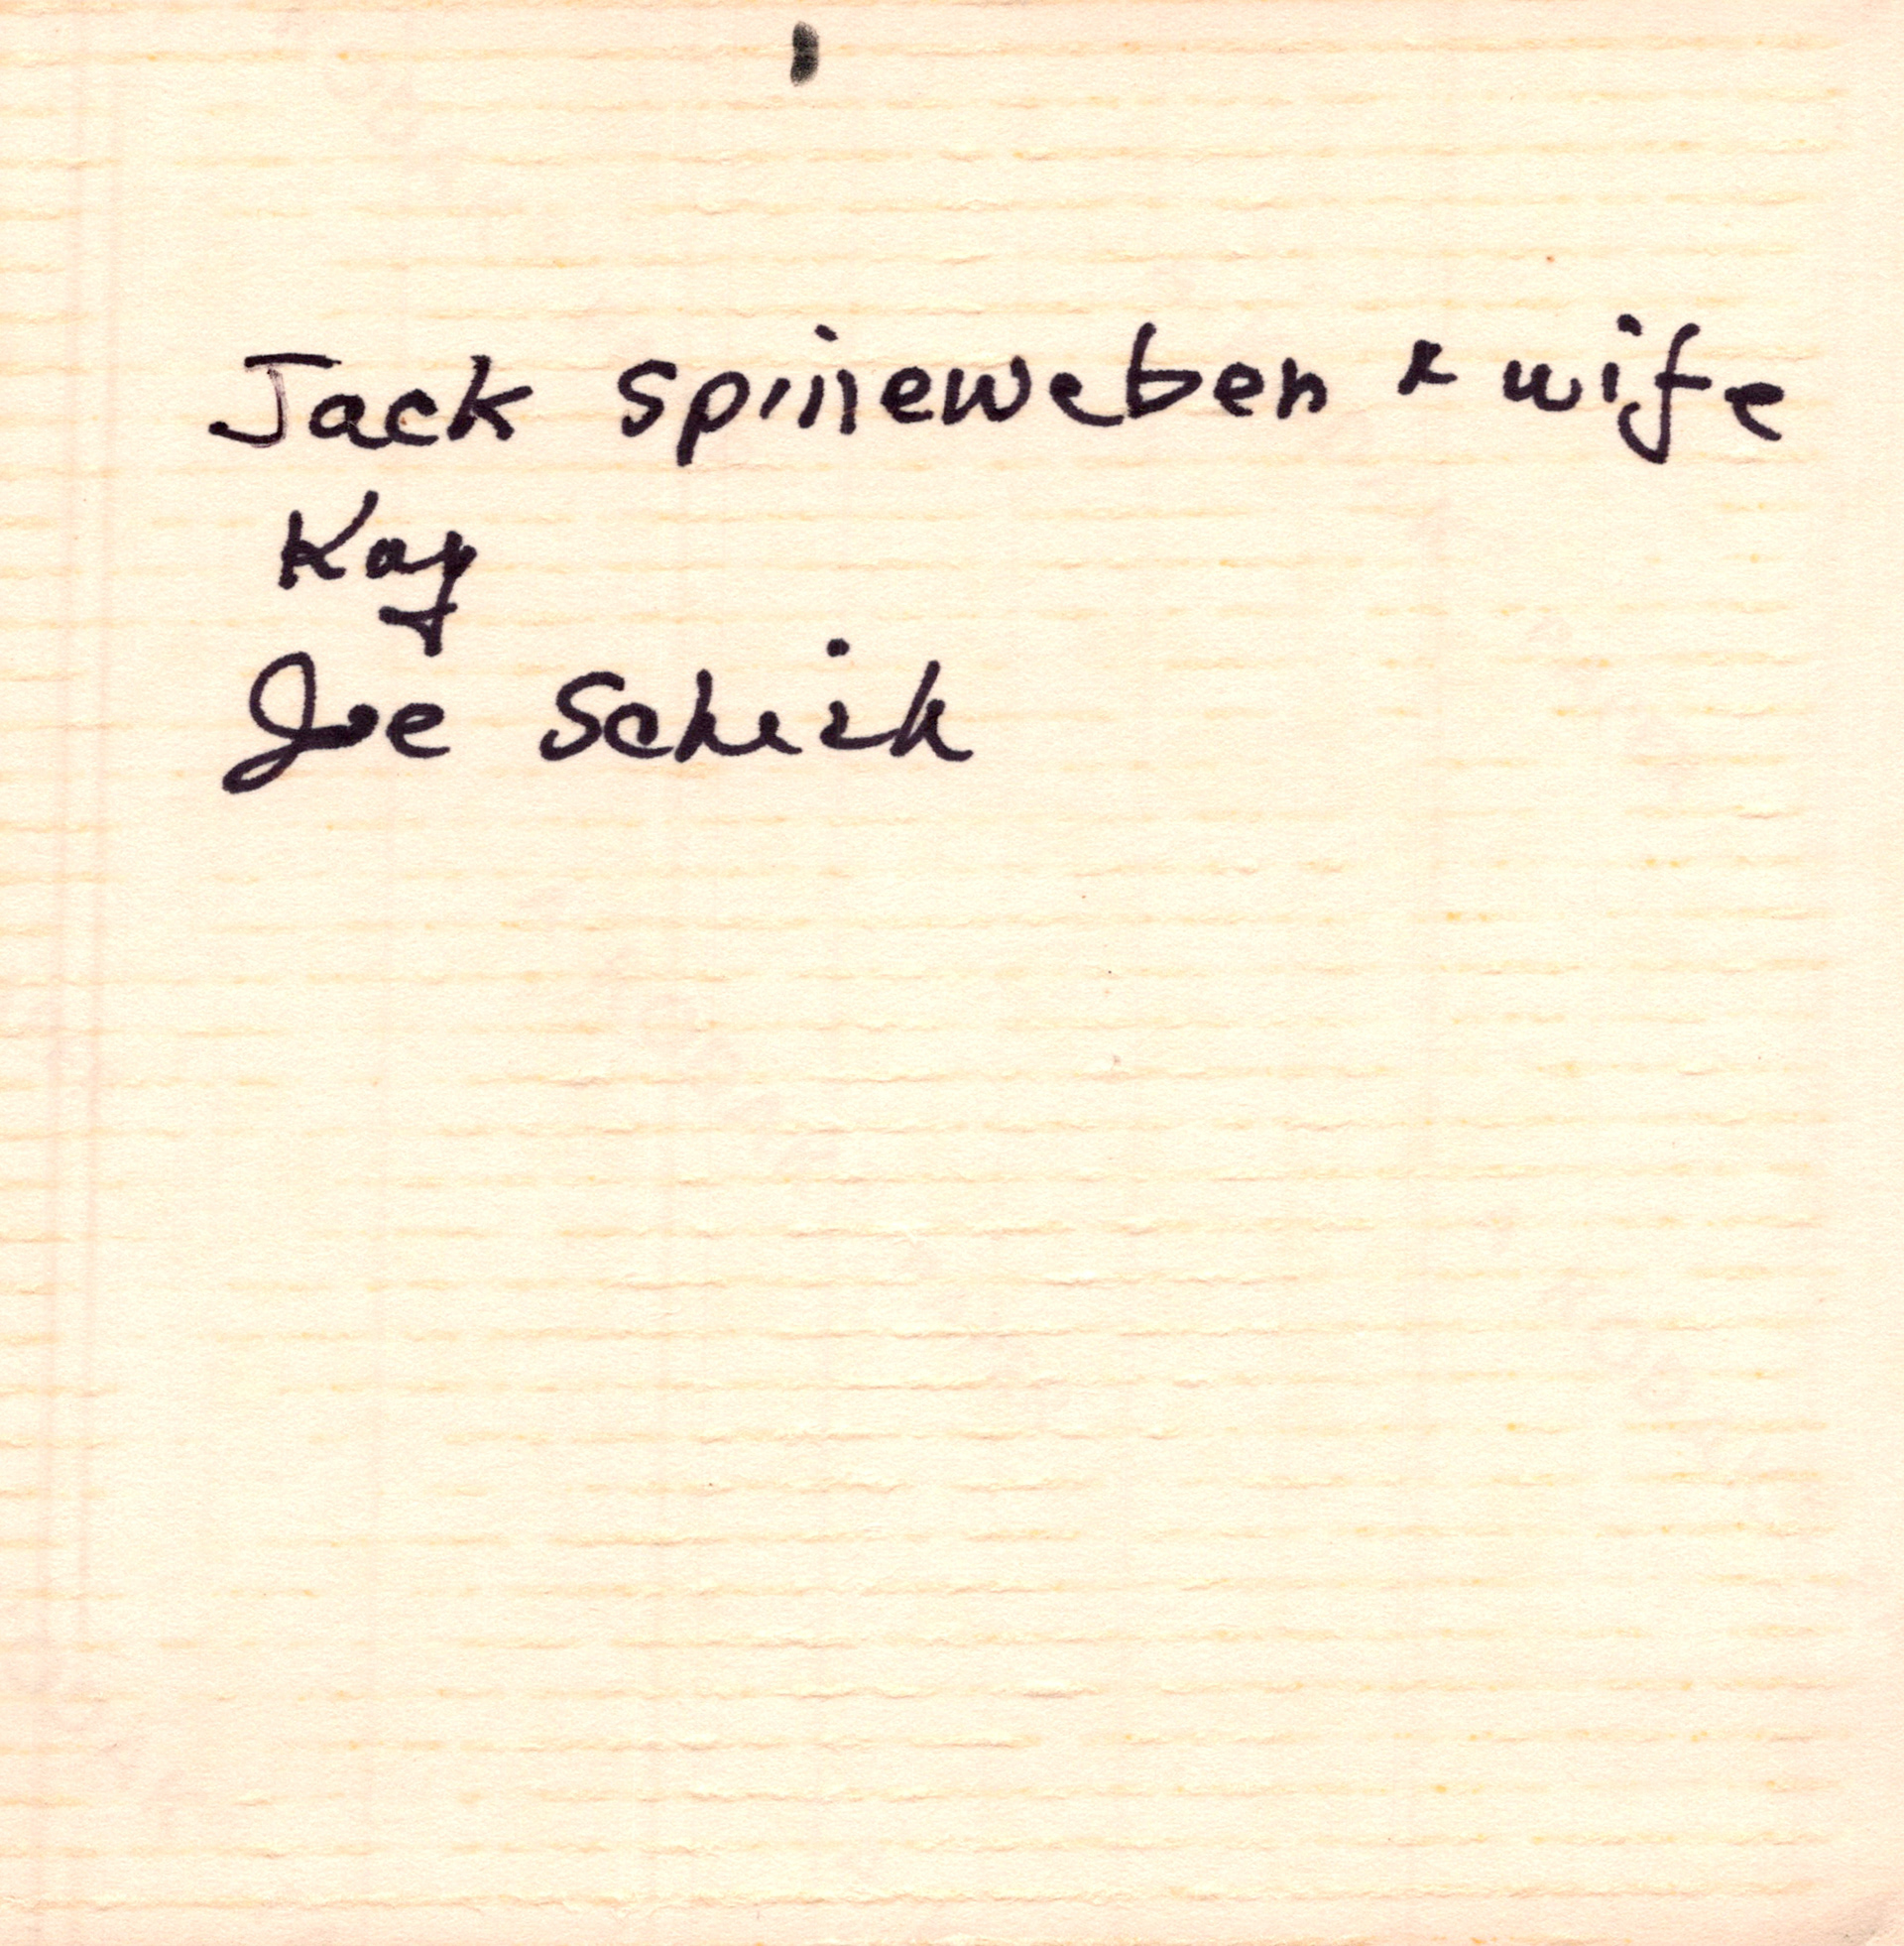 Jack Spineweben & wife
Kay
Joe Schick